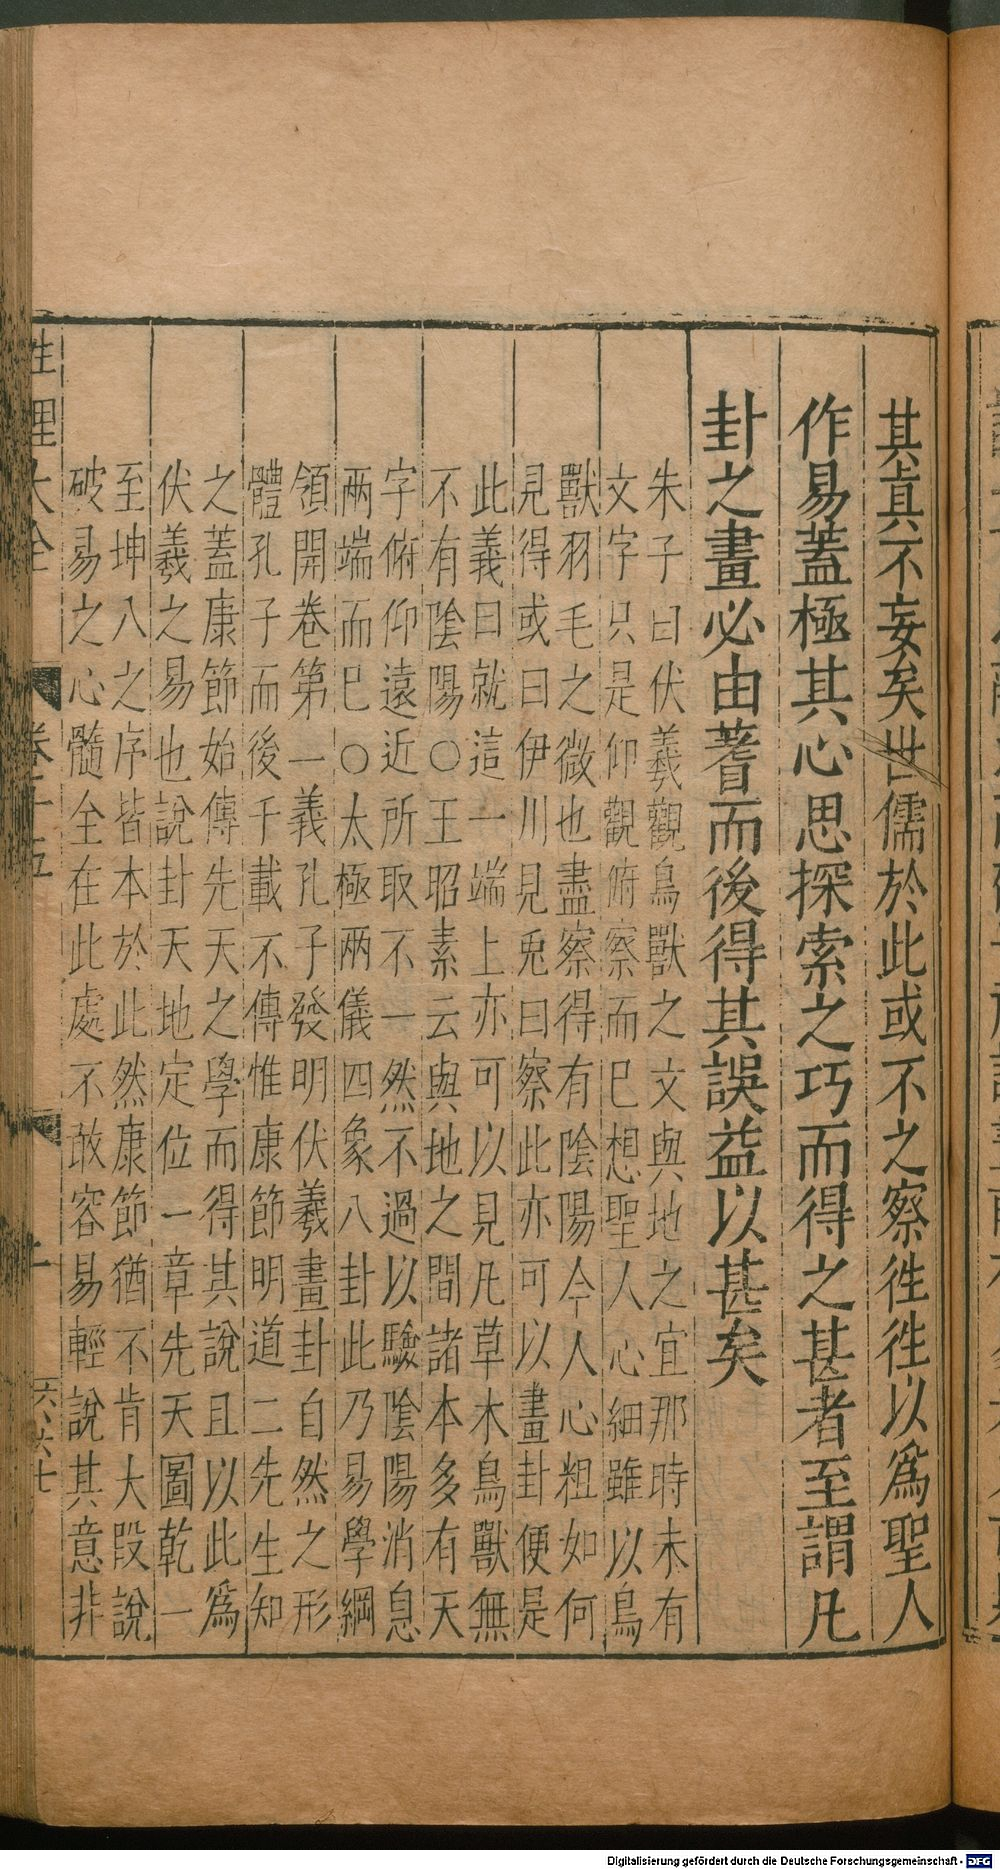 其真不妄矣世儒於此或不之察徃徃以爲聖人
作易蓋極其心思探索之巧而得之甚者至謂凡
卦之畫必由蓍而後得其誤益以甚矣
朱子曰伏羲觀鳥獸之文與地之宜那時未有
文字只是仰觀俯察而已想聖人心細雖以鳥
獸羽毛之微也盡察得有陰陽今人心粗如何
見得或曰伊川見兎曰察此亦可以畫卦便是
此義曰就這一端上亦可以見凡草木鳥獸無
不有陰陽○王昭素云與地之間諸本多有天
字俯仰遠近所取不一然不過以驗陰陽消息
兩端而已○太極兩儀四象八卦此乃易學綱
領開卷第一義孔子發明伏羲畫卦自然之形
體孔子而後千載不傳惟康節明道二先生知
之蓋康節始傳先天之學而得其說且以此爲
伏羲之易也說卦天地定位一章先天圖乾一
至坤八之序皆本於此然康節猶不肯大段說
破易之心髓全在此處不敢容易輕說其意非
性理大全 卷十五
Digitalisierung gefördert durch die Deutsche Forschungsgemeinschaft - DFG